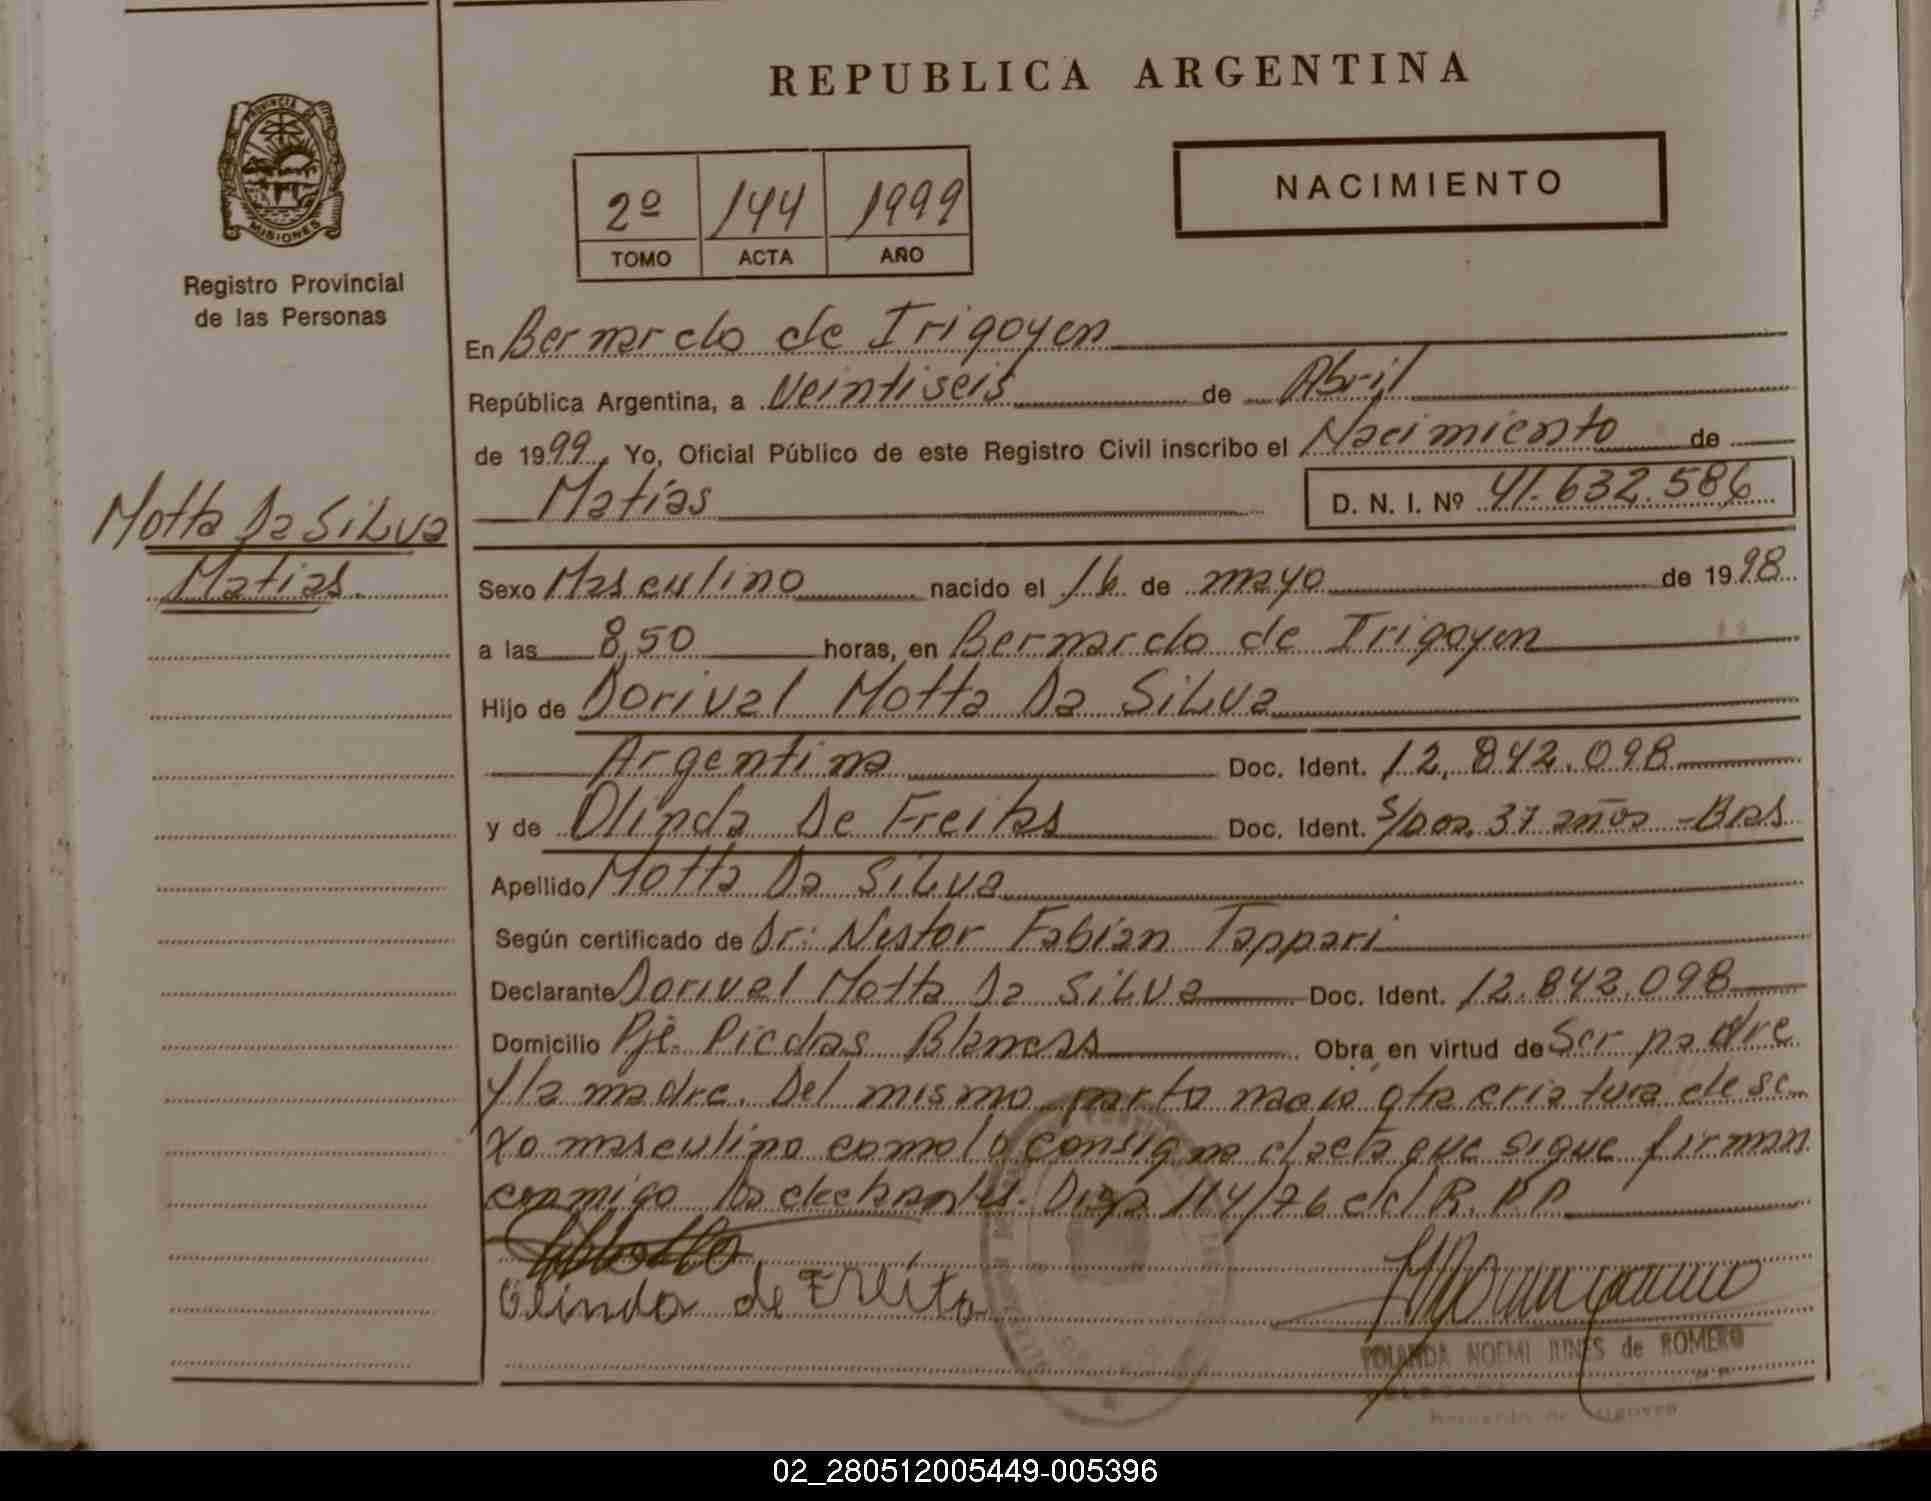 REPUBLICA ARGENTINA
PROVINCIA DE
MISIONES
Registro Provincial
de las Personas
2º 144 1999
TOMO ACTA AÑO
NACIMIENTO
En Bernardo de Irigoyen
República Argentina, a Veintiseis de Abril
de 1999, Yo, Oficial Público de este Registro Civil inscribo el Nacimiento de
Matías D. N. I. Nº 41.632.586
Motta Da Silva
Matias.
Sexo Masculino nacido el 16 de mayo de 1998
a las 8,50 horas, en Bernardo de Irigoyen
Hijo de Dorival Motta Da Silva
Argentina Doc. Ident. 12.842.098
y de Olinda De Freitas Doc. Ident. s/Doc. 37 años - Bras
Apellido Motta Da Silva
Según certificado de Dr: Nestor Fabián Tappari
Declarante Dorival Motta Da Silva Doc. Ident. 12.842.098
Domicilio Pje. Piedas Blancas Obra en virtud de Ser padre
y la madre. Del mismo parto nació otra criatura de se-
xo masculino como lo consigna el acta que sigue firman
conmigo los declarantes. Disp 114/76 del R.P.P.
Olinda de Freita
YOLANDA NOEMI JUNES de ROMERO
Bernardo de Irigoyen
02_280512005449-005396